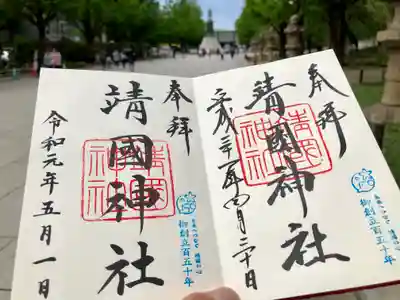 奉拝
靖國神社
平成三十一年四月三十日
靖国神社
御創立百五十年
奉拝
靖國神社
令和元年五月一日
靖国神社
御創立百五十年